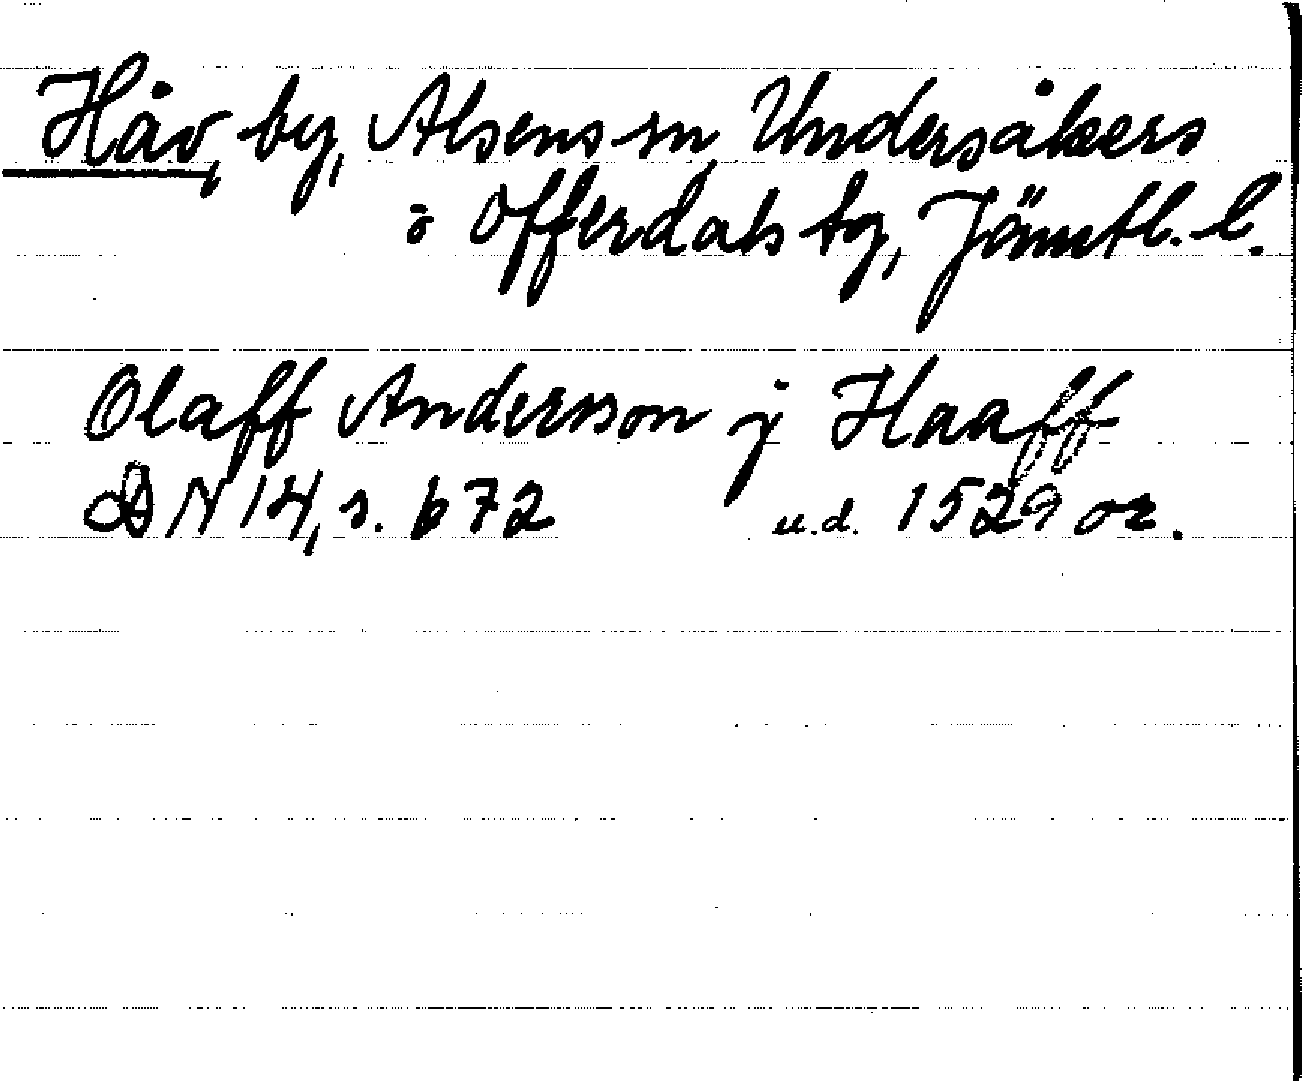 Håv, by, Alsens sn, Undersåkers
o Offerdals tg, Jämtl. l.
Olaff Andersson j Haaff
DN 14, s. 672 u.d. 1529 or.